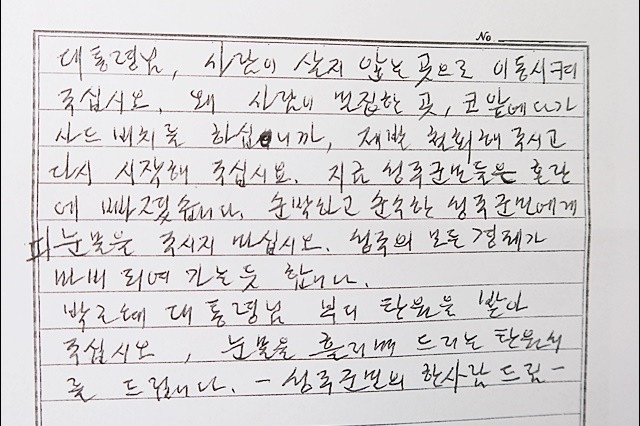 No
대통령님, 사람이 살지 않는 곳으로 이동시켜
주십시오. 왜 사람이 밀집한 곳, 코앞에다가
사드 배치를 하십니까, 제발 철회해 주시고
다시 시작해 주십시요. 지금 성주군민들은 혼란
에 빠졌습니다. 순박하고 순수한 성주군민에게
피눈물을 주시지 마십시오. 성주의 모든 경제가
마비 되여 가는듯 합니다.
박근혜 대통령님 부디 탄원을 받아
주십시오, 눈물을 흘리며 드리는 탄원서
를 드립니다. - 성주군민의 한사람 드림 -